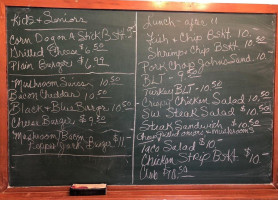 Kids & Seniors
Corn Dog on a Stick Bskt
Grilled Cheese $6.50
Plain Burger $6.99
Mushroom Swiss 10.50
Bacon Cheddar 10.50
Black & Blue Burger 10.50
Cheese Burger $9.50
Mushroom/Bacon
Burger $11.
Lunch - after 11
Fish & Chip Bskt 10.50
Shrimp & Chip Bskt. 10.50
Pork Chop Sand. 10.50
BLT - 9.50
Turkey BLT - 10.50
Crispy Chicken Salad 10.50
SW Steak Salad $10.50
Steak Sandwich $10.50
onions & mushrooms
Taco Salad $10-
Chicken Strip Bskt. $10-
$10.50